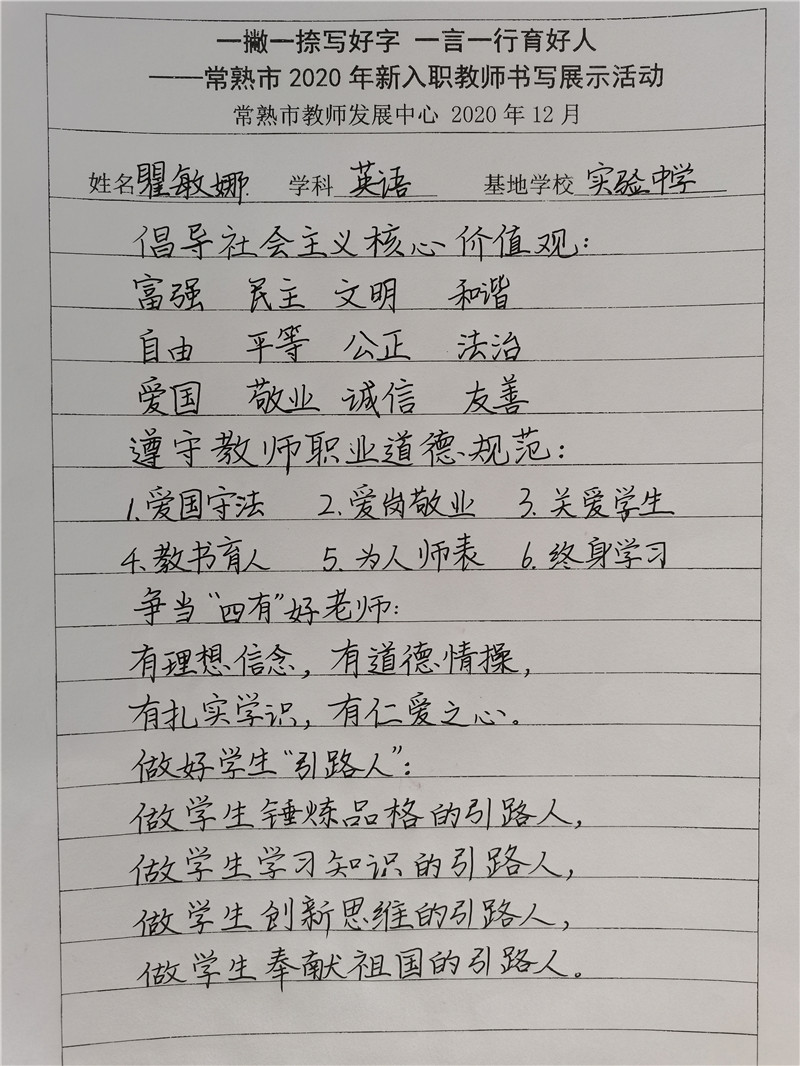 一撇一捺写好字 一言一行育好人
——常熟市 2020 年新入职教师书写展示活动
常熟市教师发展中心 2020 年 12 月
姓名瞿敏娜 学科 英语 基地学校 实验中学
倡导社会主义核心价值观：
富强 民主 文明 和谐
自由 平等 公正 法治
爱国 敬业 诚信 友善
遵守教师职业道德规范：
1.爱国守法 2.爱岗敬业 3.关爱学生
4.教书育人 5.为人师表 6.终身学习
争当“四有”好老师：
有理想信念，有道德情操，
有扎实学识，有仁爱之心。
做好学生“引路人”：
做学生锤炼品格的引路人，
做学生学习知识的引路人，
做学生创新思维的引路人，
做学生奉献祖国的引路人。